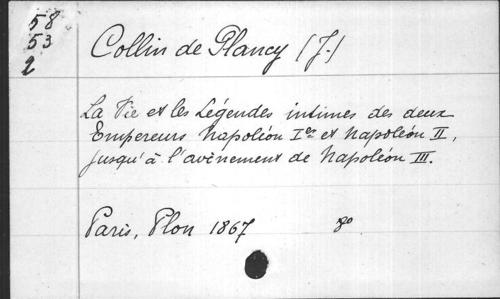 58
53
2
Collin de Plancy (J.)
La Vie et les Légendes intimes des deux
Empereurs Napoléon Ier et Napoléon II,
jusqu'à l'avènement de Napoléon III.
Paris, Plon 1867